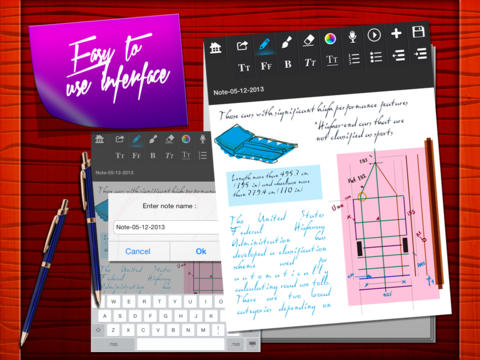 Easy to
use inferface
Note-05-12-2013
Those cars with significant high performance features
*Higher-end cars that are
not classified as sports
Length more than 495.3 cm
(195 in) and wheelbase more
than 279.4 cm (110 in)
The United States
Federal Highway
Administration has
developed a classification
scheme used for
automatically
calculating road use tolls.
There are two broad
categories depending on
Tt Ff B Tt Tt
Note-05-13-2013
Those cars with significant high performance
Enter note name :
Note-05-12-2013
Cancel Ok
Q W E R T Y U
A S D F G H
Z X C V B
.?123
.?123